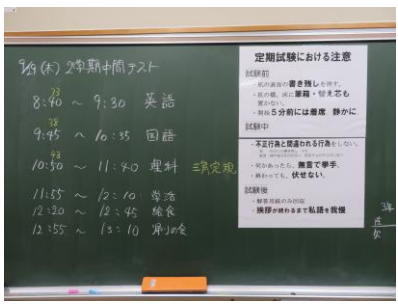 9/19(木) 2学期中間テスト
33
8:40 ~ 9:30 英語
38
9:45 ~ 10:35 国語
43
10:50 ~ 11:40 理科 三角定規
11:55 ~ 12:10 学活
12:20 ~ 12:45 給食
12:55 ~ 13:10 帰りの会
定期試験における注意
試験前
・机の裏面の書き残しを消す。
・机の横、床に筆箱・替え芯も
置かない。
・開始5分前には着席 静かに
試験中
・不正行為と間違われる行為をしない。
・何かあったら、無言で挙手。
・終わっても、伏せない。
試験後
・解答用紙のみ回収
・挨拶が終わるまで私語を我慢
3年
欠